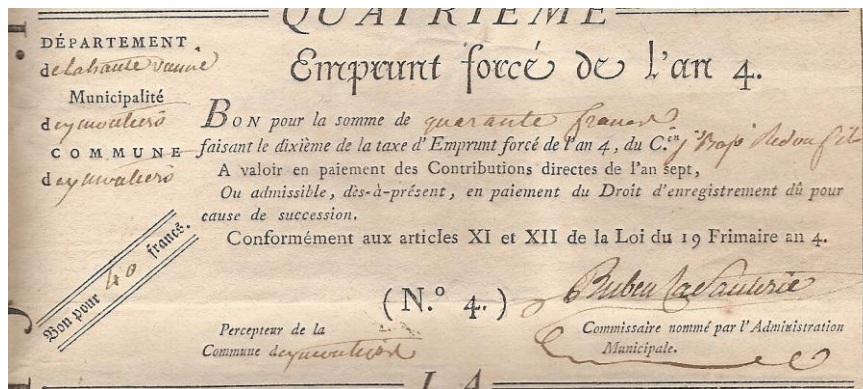 QUATRIEME
DÉPARTEMENT
de la haute vienne
Municipalité
deymoutiers
COMMUNE
deymoutiers
Bon pour 40 francs.
Emprunt forcé de l'an 4.
BON pour la somme de quarante francs
faisant le dixième de la taxe d'Emprunt forcé de l'an 4, du C.en j Bap Redon fils
A valoir en paiement des Contributions directes de l'an sept,
Ou admissible, dès-à-présent, en paiement du Droit d'enregistrement dû pour
cause de succession.
Conformément aux articles XI et XII de la Loi du 19 Frimaire an 4.
(N.º 4.)
Percepteur de la
Commune deymoutiers
Ruben
Commissaire nommé par l'Administration
Municipale.
LA